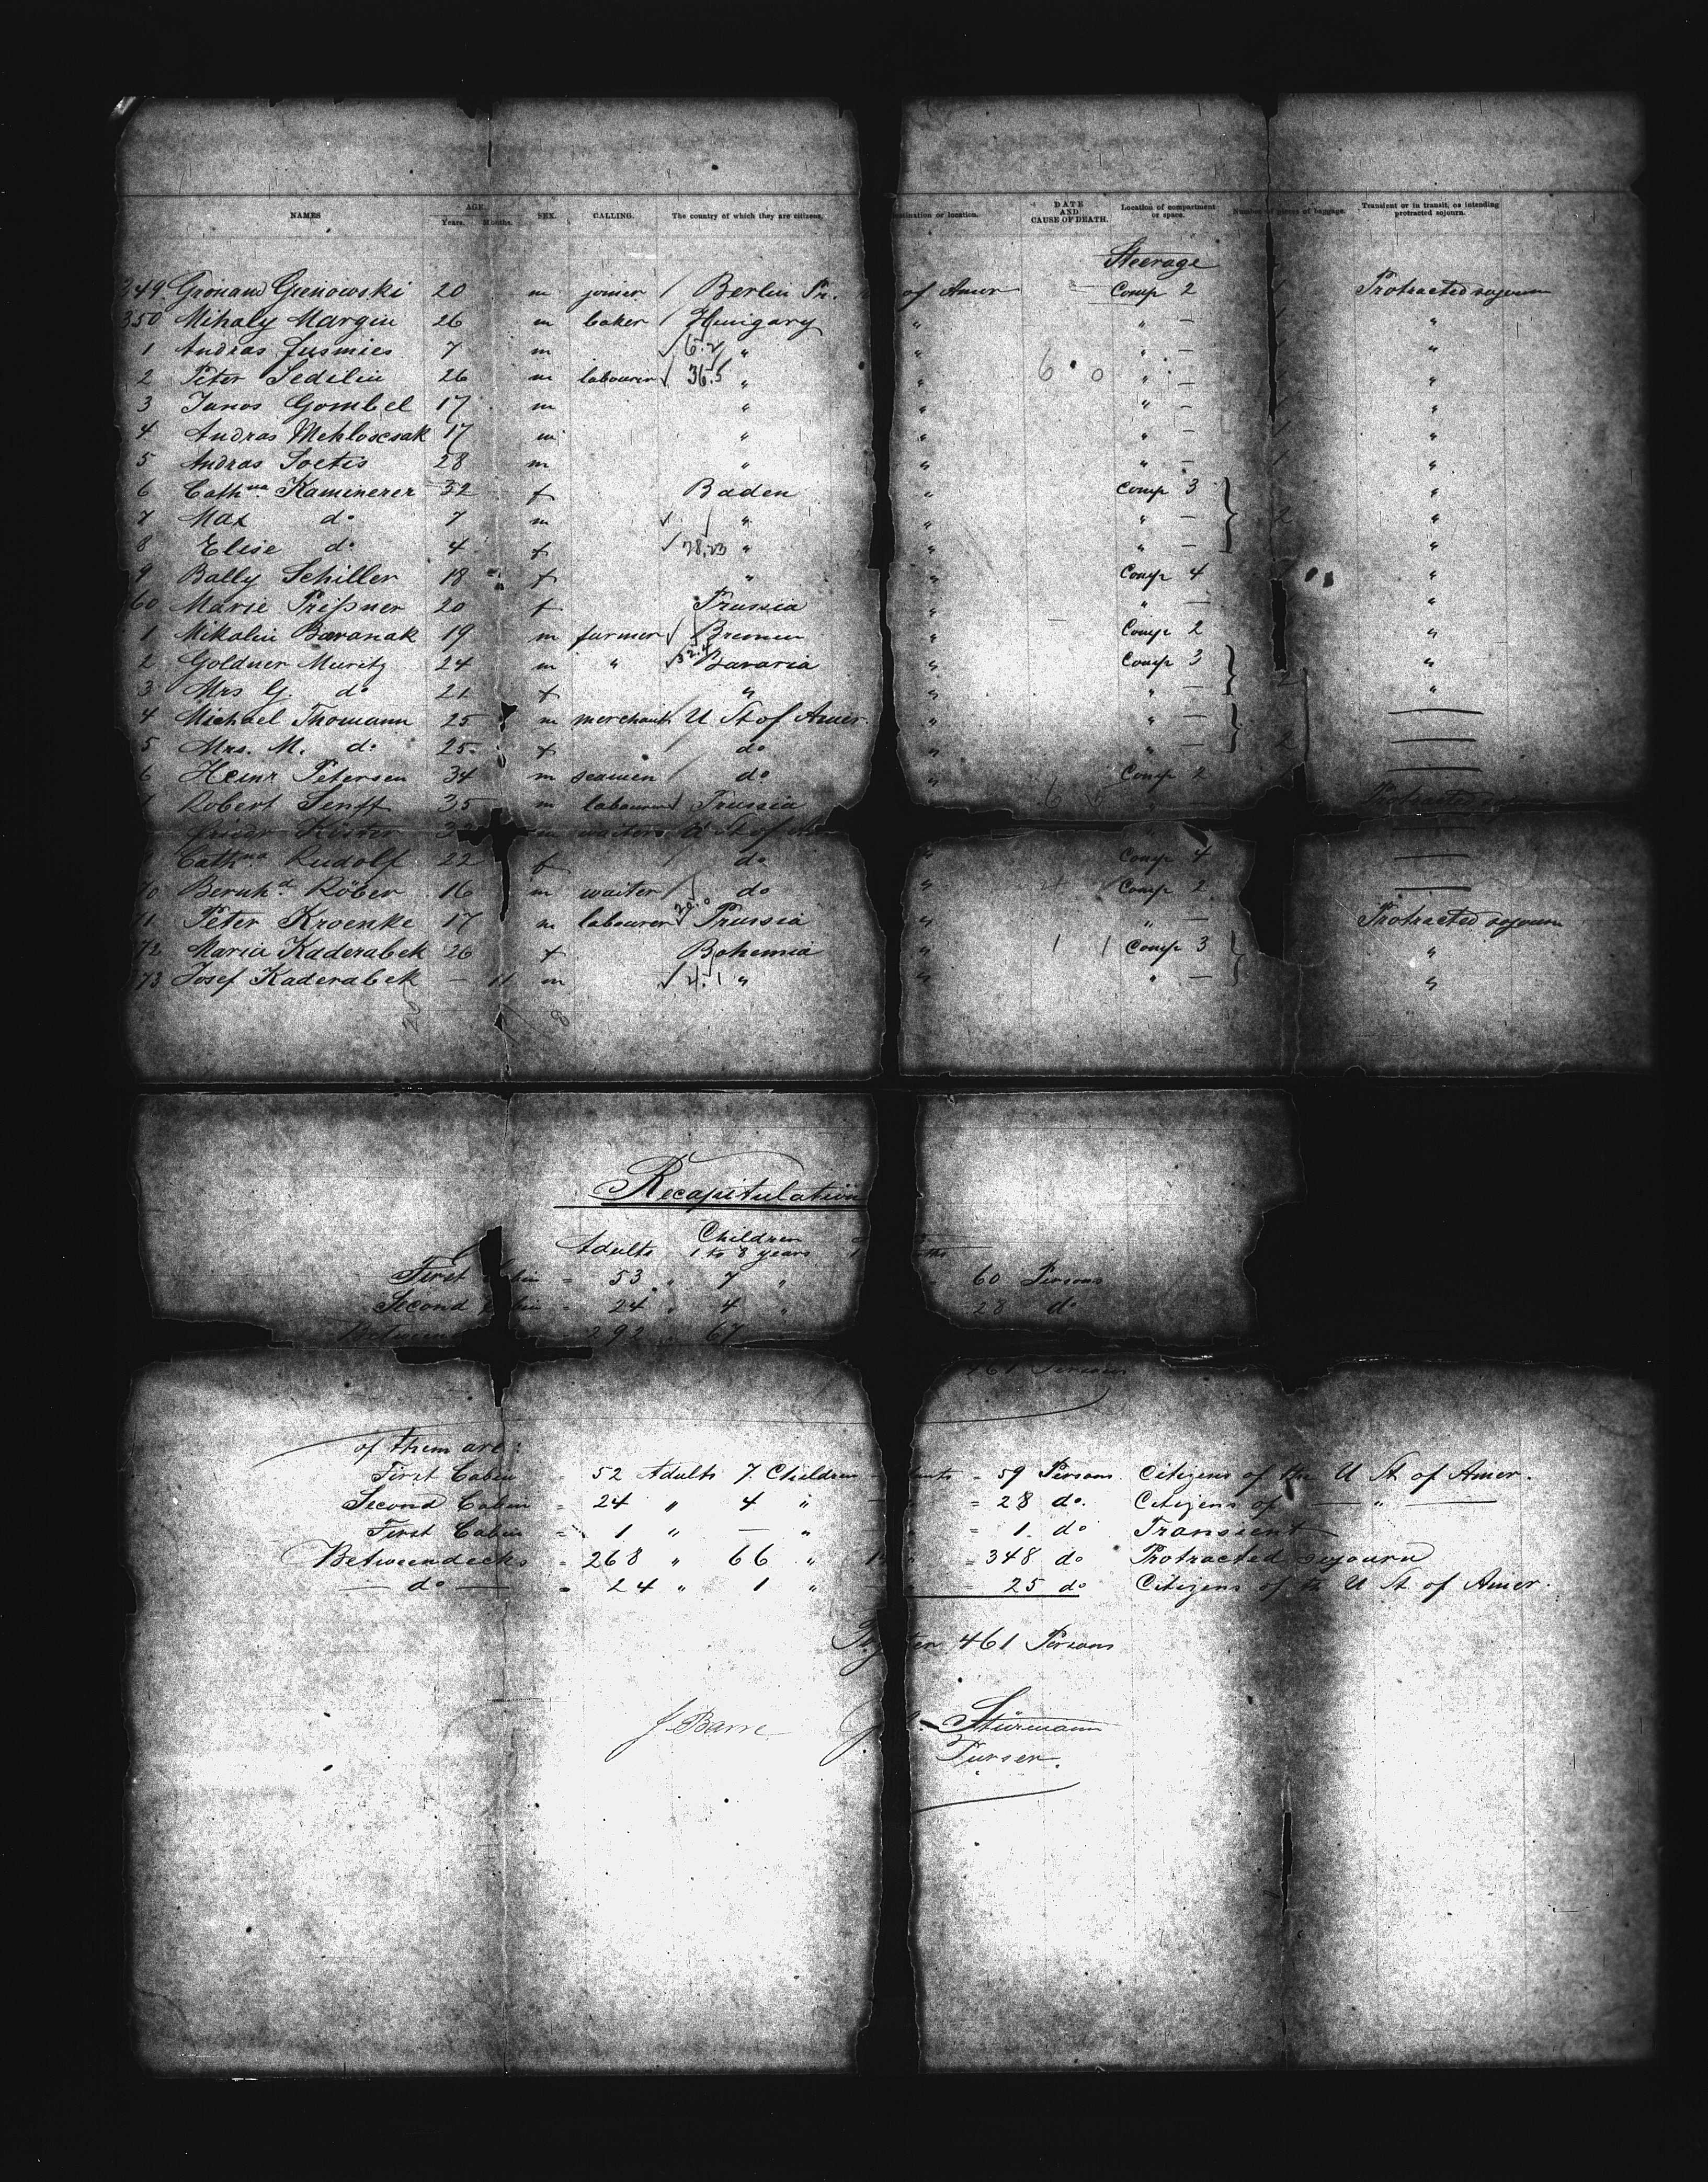 NAMES AGE Years. Months. SEX. CALLING. The country of which they are citizens. location. DATE AND CAUSE OF DEATH. Location of compartment or space. Number of pieces of baggage. Transient or in transit, or intending protracted sojourn.
Steerage
349. Gronaw Grenowski 20 m joiner / Berlin Pr. of Amer Comp 2 Protracted sojourn
350 Mihaly Margin 26 m baker / Hungary " " — "
1 Andras Jusmics 7 m " " " — "
2 Peter Sedilin 26 m labourer 36.5 " " " — "
3 Janos Gombel 17 m " " " — "
4 Andras Mehloscsak 17 m " " " — "
5 Andras Soetis 28 m " " " — "
6 Cathna Kaminerer 32 f Baden " Comp 3 "
7 Max do 7 m " " " — 2 "
8 Elise do 4 f " " " — "
9 Bally Schiller 18 f " " Comp 4 "
60 Marie Prißner 20 f Prussia " " — "
1 Mikolin Baranak 19 m farmer Bremen " Comp 2 "
2 Goldner Moritz 24 m " Bavaria " Comp 3 "
3 Mrs G. do 21 f " " " — "
4 Michael Thomann 25 m merchant U St of Amer. " " — —
5 Mrs. M. do 25 f do " " — 2 —
6 Heinr Petersen 34 m seamen / do " Comp 2 —
7 Robert Senff 35 m labourer Prussia " Protracted
m U St of
Cathna Rudolf 22 f do " Comp 4 —
70 Bernhd Röber 16 m waiter / do " Comp 2 —
71 Peter Kroenke 17 m labourer Prussia " " — Protracted sojourn
72 Maria Kaderabek 26 f Bohemia " Comp 3 "
73 Josef Kaderabek — 11 m 4.1 " " " — "
Recapitulation
Adults Children 1 to 8 years
First = 53 " 7 " = 60 Persons
Second = 24 " 4 " 28 do
292 67
461 Persons
of them are:
First Cabin = 52 Adults 7 Children = 59 Persons Citizens of the U St of Amer.
Second Cabin = 24 " 4 " = 28 do. Citizens of — " —
First Cabin = 1 " — " = 1. do Transient
Betweendecks = 268 " 66 " = 348 do Protracted sojourn
— do — = 24 " 1 " = 25 do Citizens of the U St. of Amer.
461 Persons
J. Barre Stürmann
Purser.